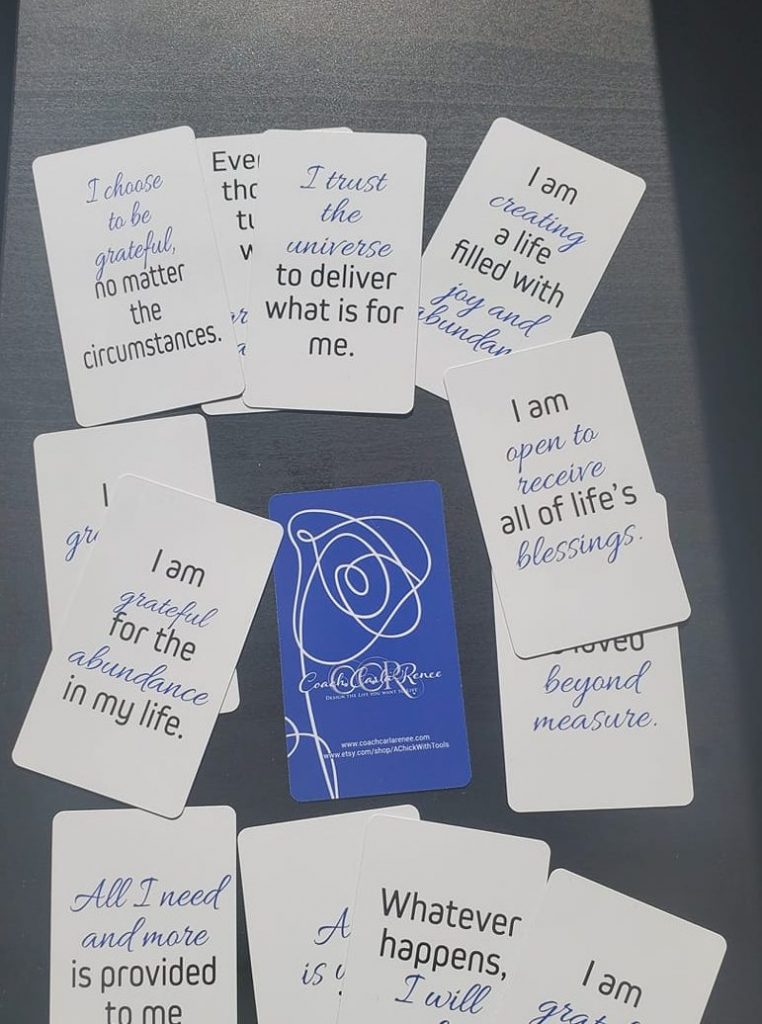 I choose
to be
grateful,
no matter
the
circumstances.
I trust
the
universe
to deliver
what is for
me.
I am
creating
a life
filled with
joy and
I am
open to
receive
all of life's
blessings.
I am
grateful
for the
abundance
in my life.
Coach Carla Renee
CCR
DESIGN THE LIFE YOU WANT TO LIVE
www.coachcarlarenee.com
www.etsy.com/shop/AChickWithTools
loved
beyond
measure.
All I need
and more
is provided
to me
is
Whatever
happens,
I will
I am